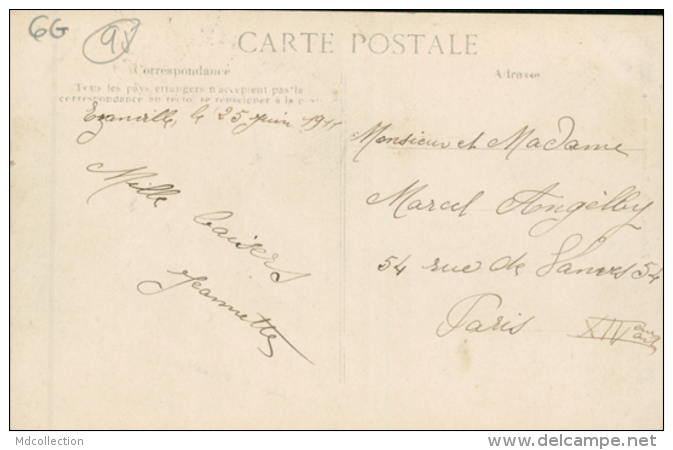 6G
95
CARTE POSTALE
Correspondance
Adresse
Tous les pays étrangers n'acceptent pas la
correspondance au recto, se renseigner à la
Ezanville, le 25 juin 1911
Mille baisers
Jeannette
Monsieur et Madame
Marcel Angélby
54 rue de Vanves 54
Paris XIV
Mdcollection
www.delcampe.net